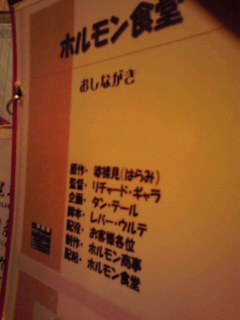 ホルモン食堂
おしながき
原作・婆裸見(はらみ)
監督・リチャード・ギャラ
企画・ダン・テール
脚本・レバー・ウルテ
配役・お客様各位
制作・ホルモン商事
配給・ホルモン食堂